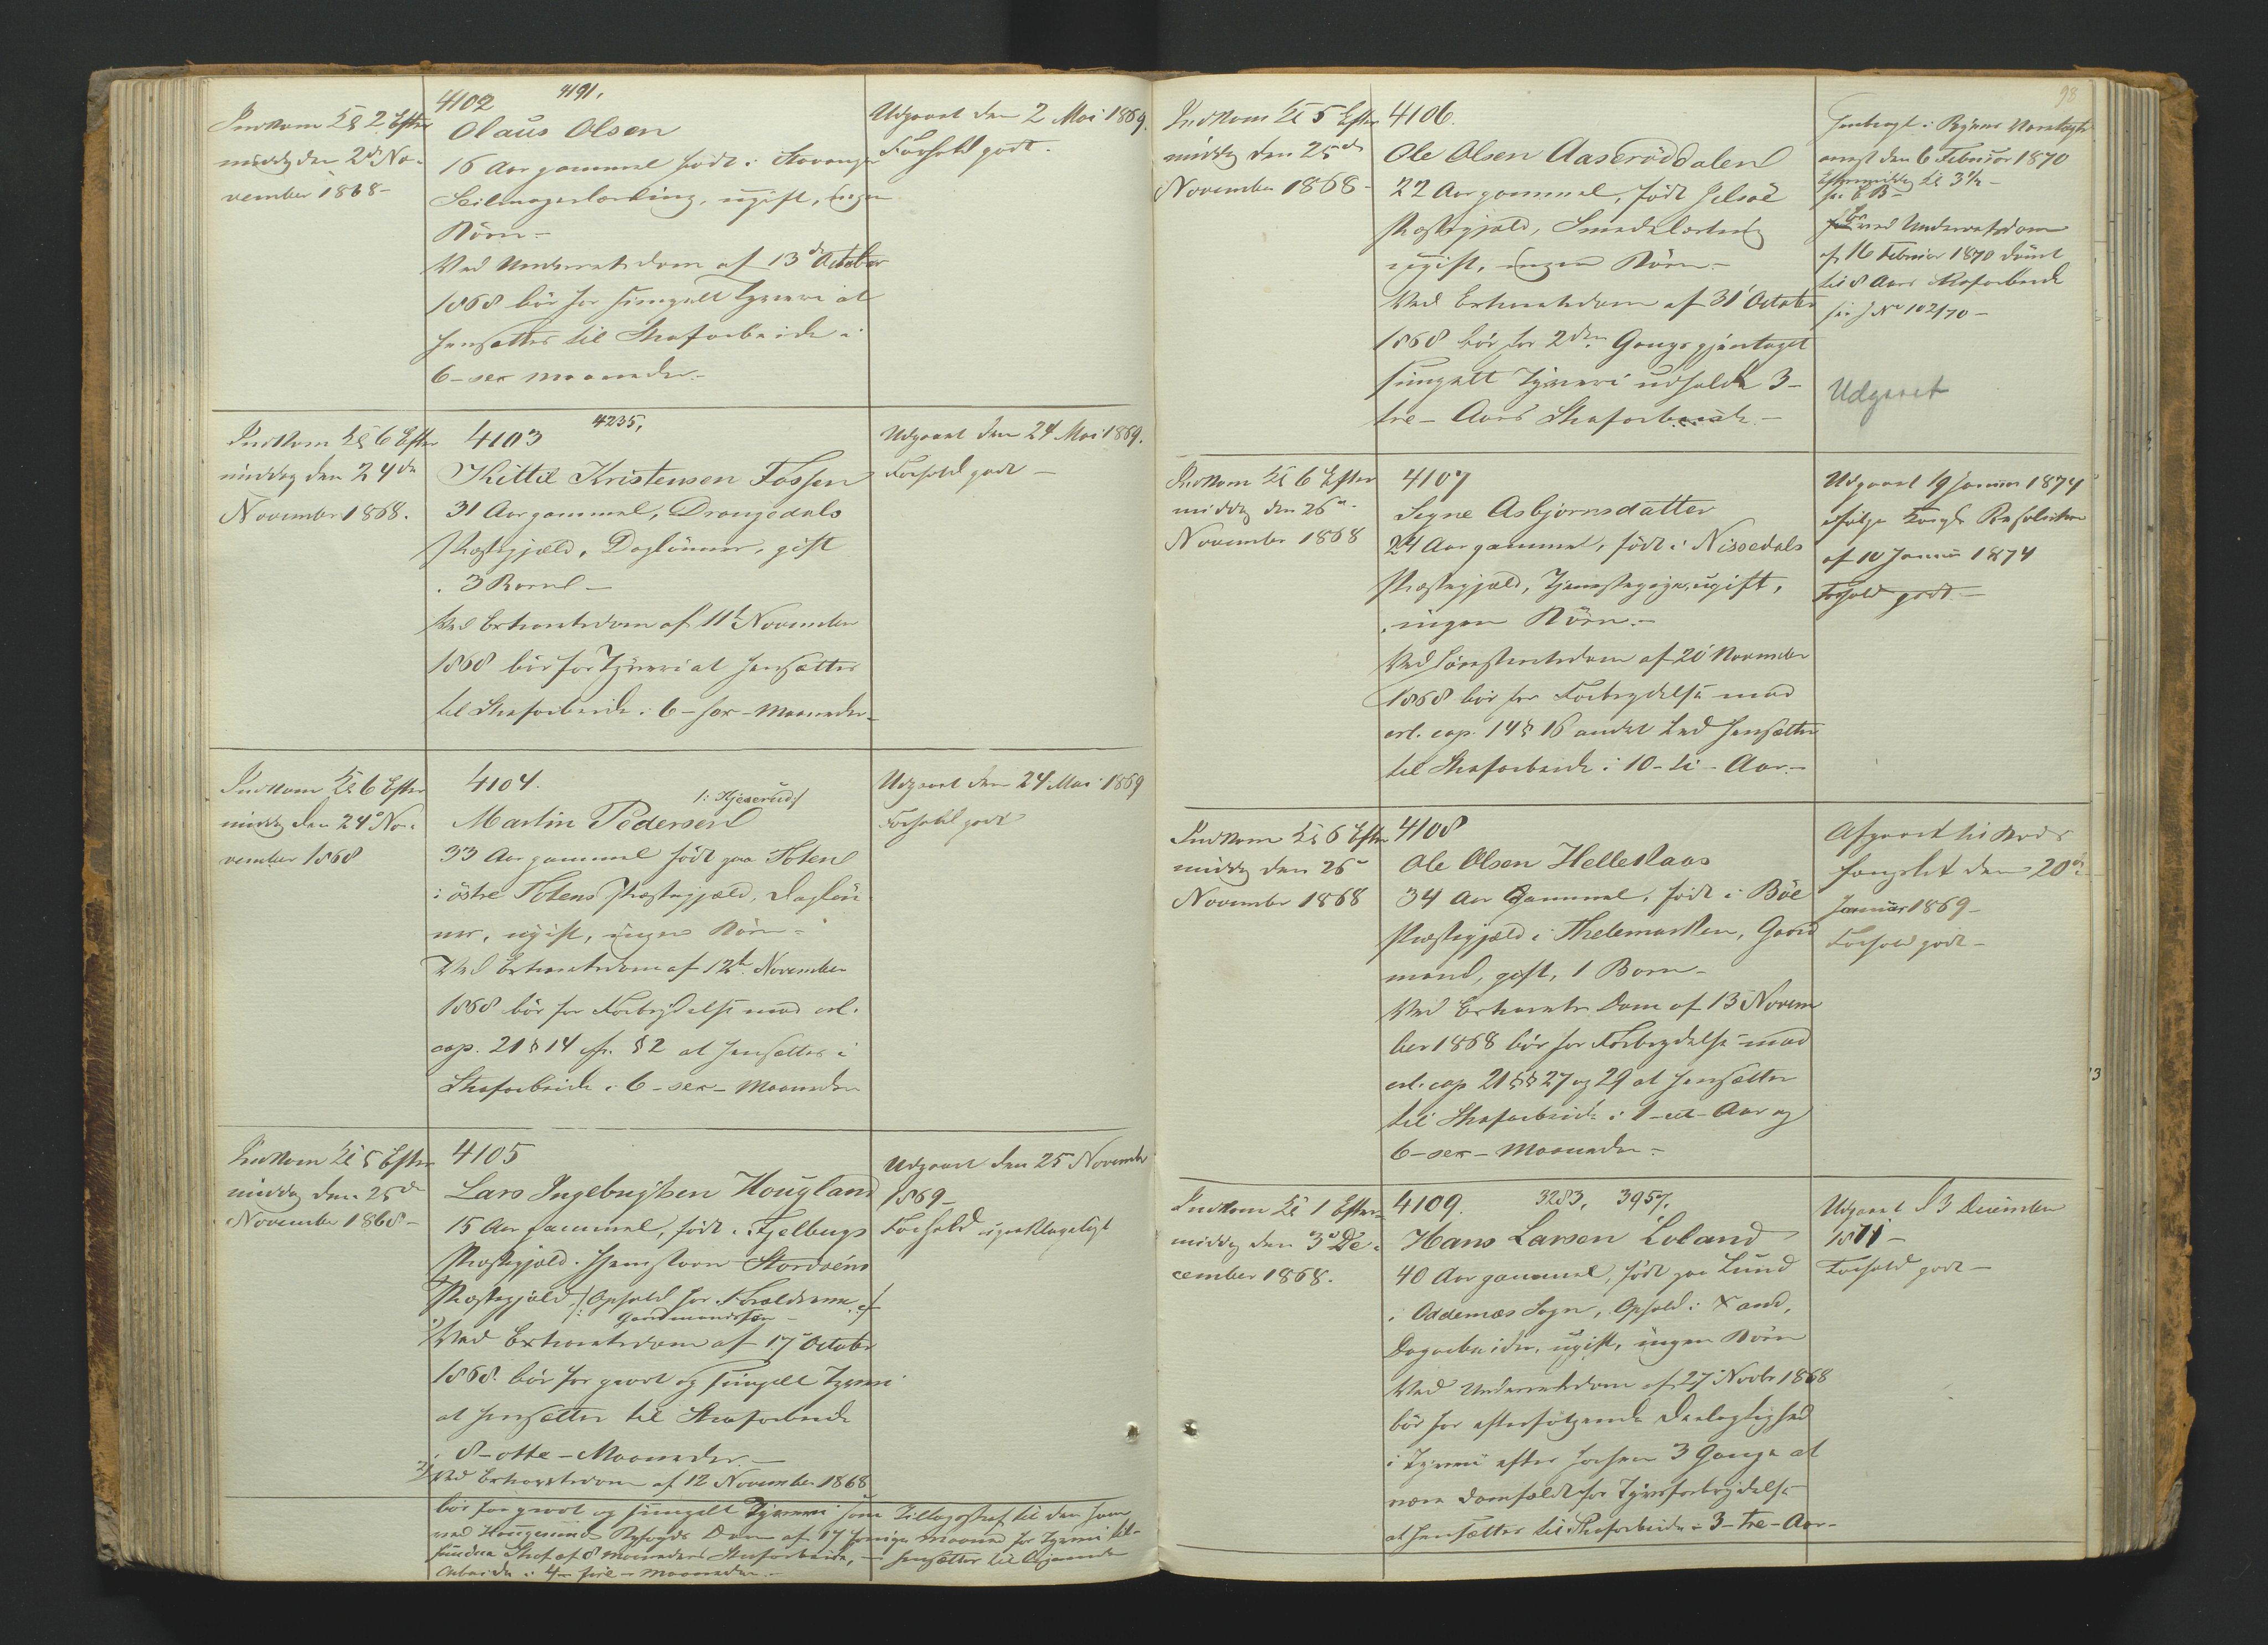 Indkom Kl 2 Efter
middg den 2d No-
vember 1868-
4102 4191.
Olaus Olsen
16 Aar gammel født i Stavanger
Seilmagerlærling, ugift, ingen
Börn-
Ved Underretsdom af 13de October
1868 bör for simpelt Tyveri at
hensættes til Strafarbeide i
6-sex Maaneder.-
Udgaaet den 2 Mai 1869.
Forhold godt.
Indkom Kl 6 Efter
middag den 24de
November 1868.
4103 4235,
Kittil Kristensen Fossen
31 Aar gammel, Drangedals
Præstegjæld, Daglönner, gift
. 3 Börn -
Ved Extraretsdom af 11te November
1868 bör for Tyveri at hensættes
til Strafarbeide i 6-sex-Maaneder-
Udgaaet den 24 Mai 1869.
Forhold godt -
Indkom Kl 6 Efter
middg den 24de No-
vember 1868
4104.
Martin Pedersen /: Kjeserud :/
33 Aar gammel født paa Toten
i östre Totens Præstegjæld, Daglön-
ner, ugift, ingen Börn -
Ved Extraretsdom af 12te November
1868 bör for Forbrydelse mod crl.
cap. 21 § 14 cfr. § 2 at hensættes i
Strafarbeide i 6-sex-Maaneder
Udgaaet den 24 Mai 1869
Forhold godt
Indkom Kl 5 Efter
middag den 25de
November 1868-
4105
Lars Ingebrigtsen Hougland
15 Aar gammel, født i Fjelbergs
Præstegjæld. Hjemstavn Stordøens
Præstegjæld /: Ophold hos Forældrene :/
Gaardmandssøn -
1) Ved Extraretsdom af 17 October
1868 bör for grovt og simpelt Tyveri
at hensættes til Strafarbeide
i 8-otte-Maaneder.-
2) Ved Extraretsdom af 12 November 1868
bör for grovt og simpelt Tyveri som Tillægsstraf til den ham
ved Haugesunds Byfogeds Dom af 17 forrige Maaned for Tyveri til-
fundne Straf af 8 Maaneders Strafarbeide, - hensættes til lignende
Arbeide i 4-fire-Maaneder.-
Udgaaet den 25 November
1869-
Forhold upaaklageligt
98
Indkom Kl 5 Efter
middg den 25de
November 1868-
4106.
Ole Olsen Aaserøddalen
22 Aar gammel, født Jelsøe
Præstegjæld, Smedelærling
ugift, ingen Börn-
Ved Extraretsdom af 31 October
1868 bör for 2den Gangs gjentaget
simpelt Tyveri udholde 3-
tre-Aars Strafarbeide.-
Henbragt i Byens Varetægts
arrest den 6 Februar 1870
Eftermiddag Kl 3½ -
ved Underretsdom
af 16 Februar 1870 dömt
til 8 Aars Strafarbeide
se J No 102/70 -
Udgaaet
Indkom Kl 6 Efter
middg den 26de
November 1868
4107
Signe Asbjørnsdatter
24 Aar gammel, født i Nissedals
Præstegjæld, Tjenestepige, ugift,
. ingen Börn.-
Ved Høiesteretsdom af 20 November
1868 bör for Forbrydelse mod
crl. cap. 14 § 16 andet Led hensættes
til Strafarbeide i 10-ti-Aar.-
Udgaaet 19 Januar 1874
ifølge Kongl. Resolution
af 10 Januar 1874
Forhold godt.-
Indkom Kl 6 Efter
middg den 26de
November 1868
4108
Ole Olsen Helleskaas
34 Aar Gammel, født i Böe
Præstegjæld i Thelemarken, Gaard
mand, gift, 1 Barn-
Ved Extrarets Dom af 13 Novem
ber 1868 bör for Forbrydelse mod
crl. cap 21 §§ 27 og 29 at hensættes
til Strafarbeide i 1-et-Aar og
6-sex-Maaneder-
Afgaaet til Bods
fængslet den 20de
Januar 1869-
Forhold godt-
Indkom Kl 1 Efter-
middg den 3de De-
cember 1868.
4109. 3283, 3957,
Hans Larsen Loland
40 Aar gammel, født paa Lund
i Oddernæs Sogn, Ophold i X and,
Dagarbeider, ugift, ingen Börn
Ved Underretsdom af 27 Novbr 1868
bör for efterfølgende Deelagtighed
i Tyveri efter forhen 3 Gange at
være domfældt for Tyvsforbrydelse
at hensættes til Strafarbeide i 3-tre-Aar-
Udgaaet d 3 December
1871-
Forhold godt-